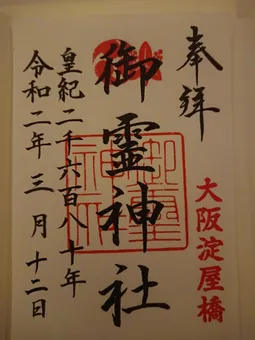 奉拝
大阪淀屋橋
御霊神社
皇紀二千六百八十年
令和二年三月十二日